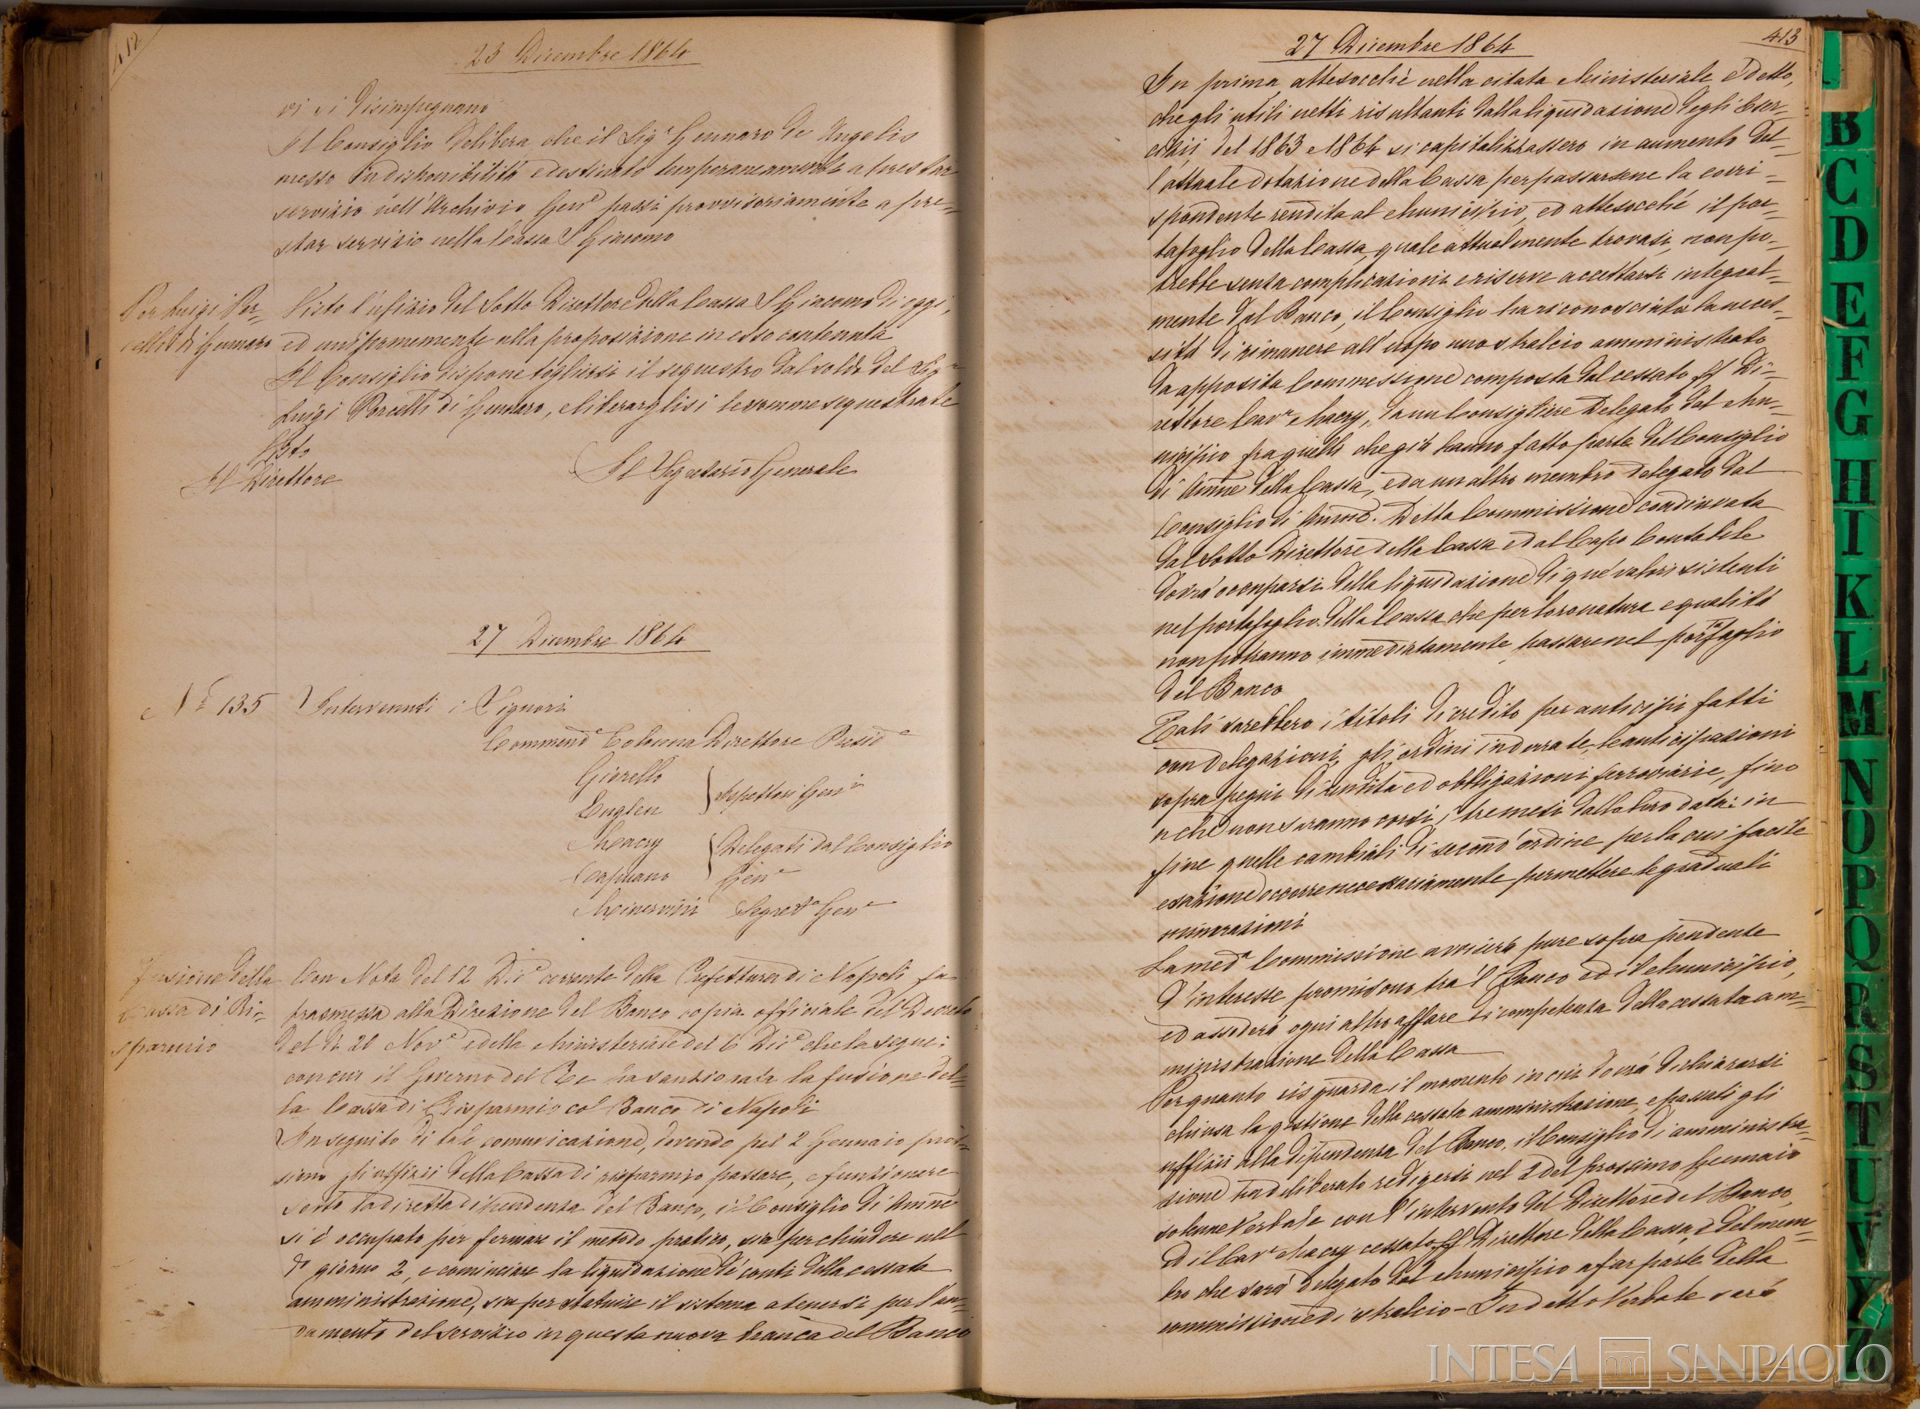 412
23 Dicembre 1864
vi si disimpegnano
Il Consiglio delibera che il Sig.r Gennaro de Angelis
messo in disponibilità e destinato temporaneamente a prestar
servizio nell'Archivio Gen.e passi provvisoriamente a pre-
star servizio nella Cassa S. Giacomo
Per Luigi Por-
celli di Gennaro
Visto l'ufizio del Sotto Direttore della Cassa S. Giacomo di oggi,
ed uniformemente alla proposizione in esso contenuta
Il Consiglio dispone togliersi il sequestro dal soldo del Sig.r
Luigi Porcelli di Gennaro, e liberarglisi le somme sequestrate
Visto
Il Direttore
Il Segretario Generale
27 Dicembre 1864
N.o 135
Intervenuti i Signori
Commend.e Colonna Direttore Presid.e
Giorello
Englen
Ispettori Gen.i
Macry
Capuano
Delegati dal Consiglio
Gen.e
Minervini Segret.o Gen.e
Fusione della
Cassa di Ri-
sparmio
Con Nota del 12 Dic.e corrente della Prefettura di Napoli fu
trasmessa alla Direzione del Banco copia officiale del Decreto
del dì 20 Nov.e e della Ministeriale del 6 Dic.e che la segue:
con cui il Governo del Re ha sanzionata la fusione del-
la Cassa di Risparmio col Banco di Napoli
In seguito di tale comunicazione, dovendo pel 2 Gennaio pros-
simo gli uffizii della Cassa di risparmio passare, e funzionare
sotto la diretta dipendenza del Banco, il Consiglio di Amm.ne
si è occupato per fermare il metodo pratico, sia per chiudere nel
dì giorno 2, e cominciare la liquidazione de' conti della cessata
amministrazione, sia per statuire il sistema a tenersi per l'an-
damento del servizio in questa nuova branca del Banco
27 Dicembre 1864
413
In prima, attesocchè nella citata Ministeriale è detto,
che gli utili netti risultanti dalla liquidazione degli Eser-
cizii del 1863 e 1864 si capitalizzassero in aumento del-
l'attuale dotazione della Cassa per passarsene la corri-
spondente rendita al Municipio, ed attesocchè il por-
tafoglio della Cassa, quale attualmente trovasi, non po-
trebbe senza complicazioni e riserve accettarsi integral-
mente dal Banco, il Consiglio ha riconosciuto la neces-
sità di rimanere all'uopo uno stralcio amministrato
da apposita Commessione composta dal cessato ff. Di-
rettore Cav.r Macry, da un Consigliere Delegato dal Mu-
nicipio fra quelli che già hanno fatto parte del Consiglio
di Amm.ne della Cassa, e da un altro membro delegato dal
Consiglio di Amm.ne. Detta Commissione coadiuvata
dal Sotto Direttore della Cassa e dal Capo Contabile
dovrà occuparsi della liquidazione di que' valori sistenti
nel portafoglio della Cassa che per loro natura e qualità
non potranno immediatamente passare nel portafoglio
del Banco
Tali sarebbero i titoli di credito per anticipi fatti
con delegazioni, gli ordini in derrate, le anticipazioni
sopra pegni di rendita ed obbligazioni ferroviarie, fino
a che non saranno corsi i tre mesi dalla loro data: in
fine quelle cambiali di second'ordine per la cui facile
esazione occorre necessariamente permettere le graduali
minorazioni
La med.a Commissione avviserà pure sopra pendente
d'interesse promiscuo tra il Banco ed il Municipio,
ed assoderà ogni altro affare di competenza della cessata am-
ministrazione della Cassa
Per quanto risguarda il momento in cui dovrà dichiararsi
chiusa la gestione della cessata amministrazione, e passati gli
uffizii alla dipendenza del Banco, il Consiglio di amministra-
zione ha deliberato redigersi nel 2 del prossimo Gennaio
solenne Verbale con l'intervento del Direttore del Banco,
del Cav.r Macry cessato ff. Direttore della Cassa, e del mem-
bro che sarà delegato dal Municipio a far parte della
commissione di stralcio - In detto Verbale sarà
B
C
D
E
F
G
H
I
K
L
M
N
O
P
Q
R
S
T
U
V
Y
Z
INTESA SANPAOLO